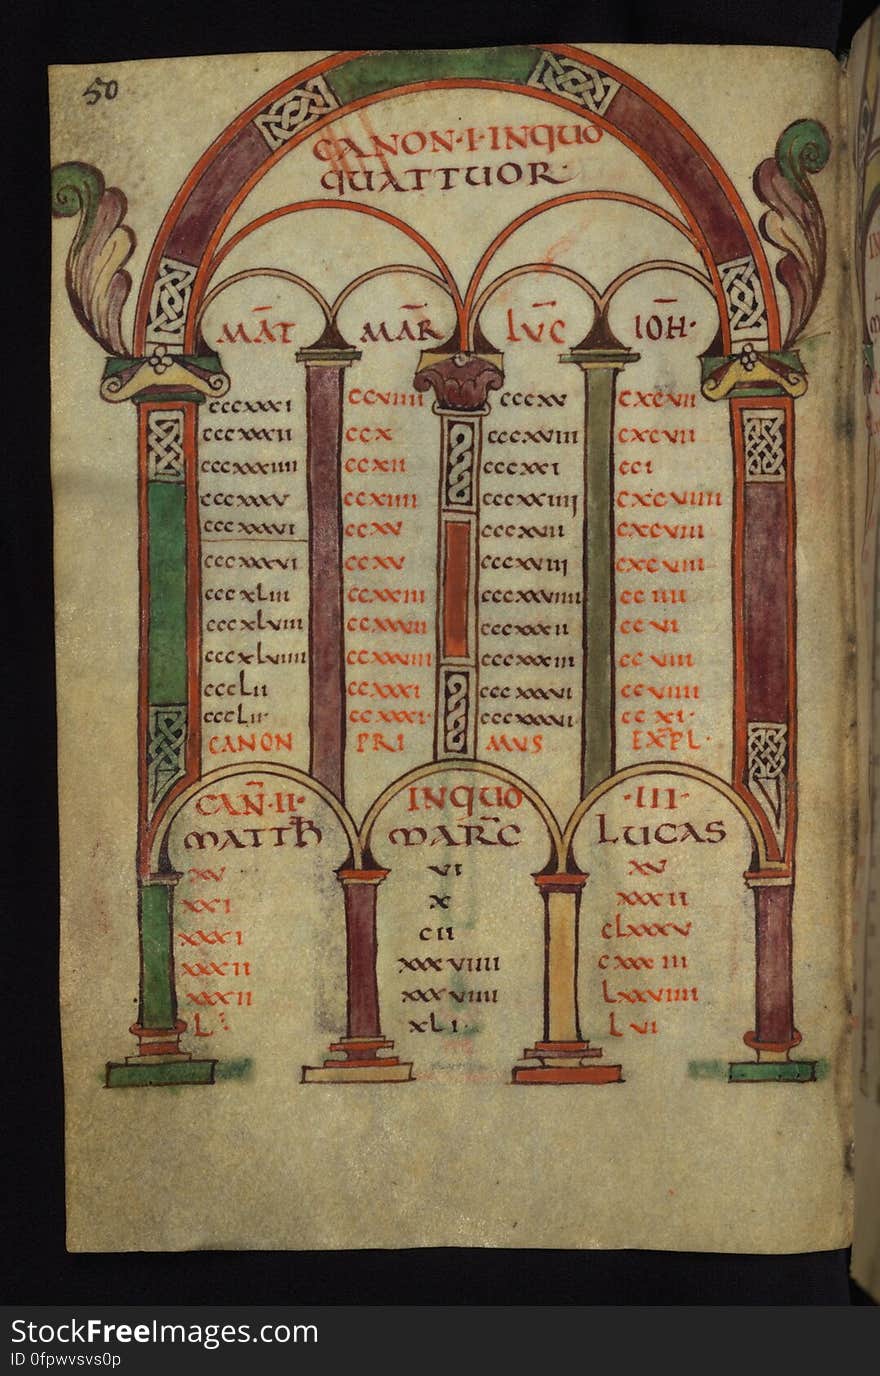 50
CANON·I·INQUO
QUATTUOR·
MAT MAR LUC IOH·
cccxxxi ccviiii cccxv cxcvii
cccxxxii ccx cccxviii cxcvii
cccxxxiiii ccxii cccxxi cci
cccxxxv ccxiiii cccxxiiii cxcviiii
cccxxxvi ccxv cccxvii cxcviii
cccxxxvi ccxv cccxviii cxcviii
cccxLiii ccxxiii cccxxviiii cciiii
cccxLviii ccxxvii cccxxxii ccvi
cccxLviiii ccxxviii cccxxxiii ccviii
cccLii ccxxxi cccxxxvi ccviiii
cccLii· ccxxxi· cccxxxvi ccxi·
CANON PRI MUS EXPL·
CAN·II· INQUO ·III·
MATTH MARC LUCAS
xv vi xv
xxi x xxxii
xxxi cii cLxxxv
xxxii xxxviiii cxxxiii
xxxii xxxviiii Lxxviiii
L xLi· Lvi
StockFreeImages.com
ID 0fpwvsvs0p